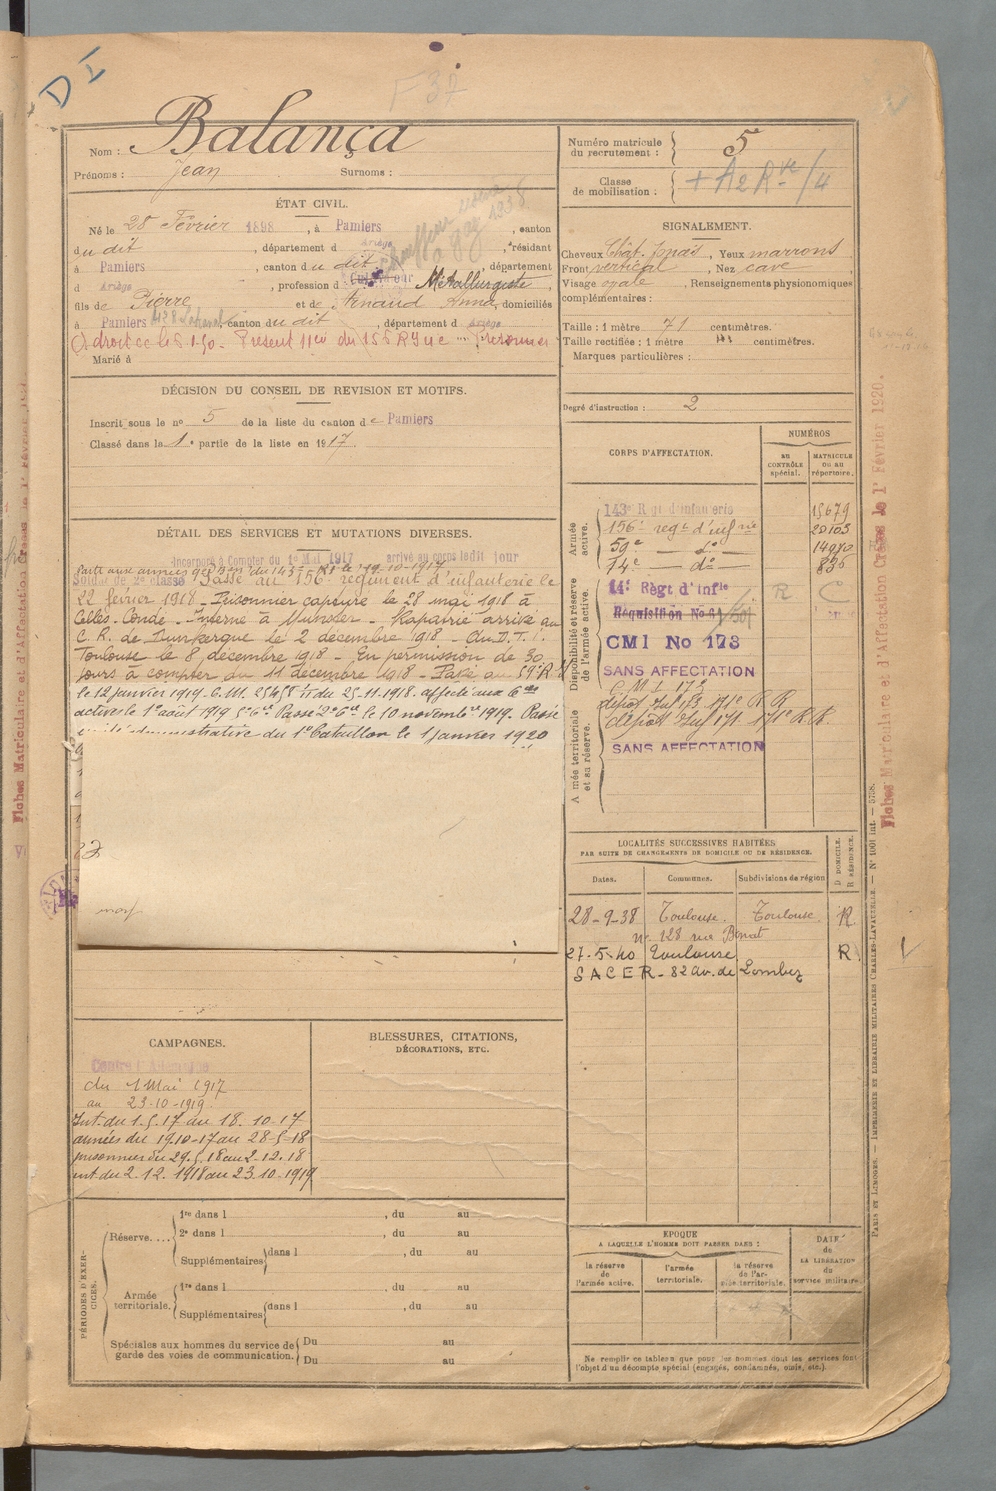 D I
F 37
Nom : Balança
Prénoms : Jean Surnoms :
Numéro matricule du recrutement : 5
Classe de mobilisation :
ÉTAT CIVIL.
Né le 28 Février 1898, à Pamiers, canton
du dit, département d Ariège, résidant
à Pamiers, canton du dit, département
d Ariège, profession d Métallurgiste,
fils de Pierre et de Arnaud Anna, domiciliés
à Pamiers, canton du dit, département d Ariège
Marié à
SIGNALEMENT.
Cheveux Chât. , Yeux marrons
Front vertical, Nez cave
Visage ovale, Renseignements physionomiques
complémentaires :
Taille : 1 mètre 71 centimètres.
Taille rectifiée : 1 mètre centimètres.
Marques particulières :
Degré d'instruction : 2
DÉCISION DU CONSEIL DE REVISION ET MOTIFS.
Inscrit sous le no 5 de la liste du canton de Pamiers
Classé dans la 1e partie de la liste en 1917.
DÉTAIL DES SERVICES ET MUTATIONS DIVERSES.
Incorporé à Compter du 1er Mai 1917 arrivé au corps ledit jour
Soldat de 2e classe Passé au 156e régiment d'infanterie le
22 février 1918 - Prisonnier capture le 28 mai 1918 à
Celles-Condé - Interné à Munster - Rapatrié arrivé au
C. R. de Dunkerque le 2 décembre 1918 - du D. T. I.
Toulouse le 8 décembre 1918 - En permission de 30
jours à compter du 11 décembre 1918 - Passé au 59e R I
le 12 janvier 1919. du 25.11.1918. affecté aux
le 1er août 1919 Passé le 10 novembre 1919. Passé
administrative du 1er Bataillon le 1 janvier 1920
CORPS D'AFFECTATION.
NUMÉROS
AU CONTRÔLE spécial.
MATRICULE OU AU répertoire.
Armée active.
143e Rgt d'infanterie 15679
156e regt d'infrie 20103
59e — do — 14980
74e — do — 835
Disponibilité et réserve de l'armée active.
14e Règt d'Infie R C
Réquisition No
CMI No 173
SANS AFFECTATION
C M I 173
dépôt Inf 173 171e R R
dépôt Inf 171 171e R.R.
Armée territoriale et sa réserve.
SANS AFFECTATION
LOCALITÉS SUCCESSIVES HABITÉES
PAR SUITE DE CHANGEMENTS DE DOMICILE OU DE RÉSIDENCE.
Dates. Communes. Subdivisions de région
D DOMICILE. R RÉSIDENCE.
28-9-38 Toulouse. Toulouse. R.
no 128 rue
27-5-40 Toulouse R
SACER - 82 av. de Lombez
CAMPAGNES.
Contre l'Allemagne
du 1 Mai 1917
au 23-10-1919
Int. du 1.5.17 au 18.10-17
armées du 19.10-17 au 28-5-18
prisonnier du 29.5.18 au 2.12.18
int du 2.12.1918 au 23.10-1919
BLESSURES, CITATIONS,
DÉCORATIONS, ETC.
PÉRIODES D'EXERCICES.
Réserve....
1re dans l , du au
2e dans l , du au
Supplémentaires dans l , du au
Armée territoriale.
1re dans l , du au
Supplémentaires dans l , du au
Spéciales aux hommes du service de garde des voies de communication.
Du au
Du au
EPOQUE
A LAQUELLE L'HOMME DOIT PASSER DANS :
la réserve de l'armée active.
l'armée territoriale.
la réserve de l'armée territoriale.
DATE de LA LIBÉRATION du service militaire.
Ne remplir ce tableau que pour les hommes dont les services font
l'objet d'un décompte spécial (engagés, condamnés, omis, etc.).
PARIS ET LIMOGES. — IMPRIMERIE ET LIBRAIRIE MILITAIRES CHARLES-LAVAUZELLE. — No 1001 int. — 5738.
Fiches Matriculaire et d'Affectation Créées le 1er Février 1920.